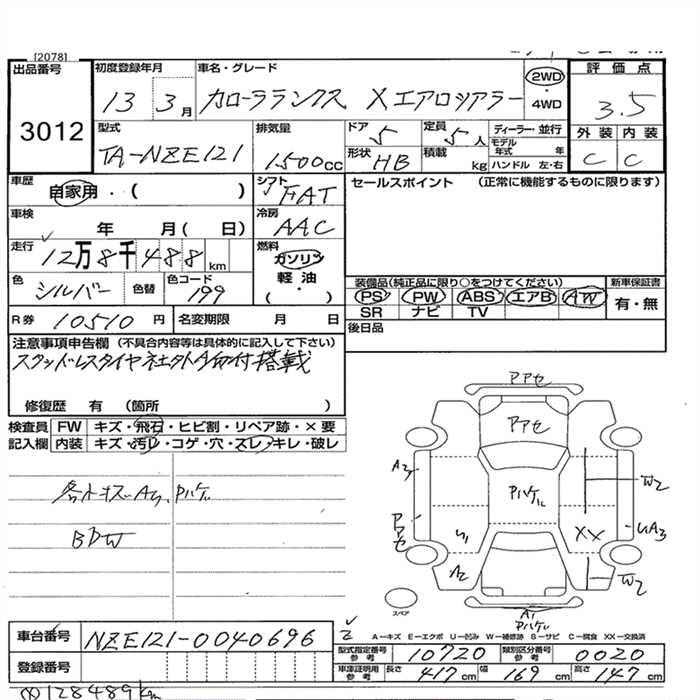 [2078]
出品番号 初度登録年月 車名・グレード 2WD・4WD 評価点
3012 13 3月 カローラランクス Xエアロツアラー 3.5
外装 内装
C C
型式 排気量 ドア 5 定員 5人 ディーラー・並行
TA-NZE121 1500cc 形状 HB 積載 kg モデル年式 年 ハンドル 左・右
車歴 自家用・( ) シフト FAT セールスポイント (正常に機能するものに限ります)
車検 年 月( 日) 冷房 AAC
走行 12万8千488km 燃料 ガソリン 軽油 ( ・ )
色 シルバー 色替 色コード 199
装備品(純正品に限り○をつけてください) 新車保証書
PS PW ABS エアB AW 有・無
SR ナビ TV
R券 10510円 名変期限 月 日 後日品
注意事項申告欄 (不具合内容等は具体的に記入して下さい)
修復歴 有 (箇所 )
検査員 FW キズ・飛石・ヒビ割・リペア跡・×要
記入欄 内装 キズ・汚レ・コゲ・穴・スレ・キレ・破レ
BDW
アアセ
アアセ
A3
W2
XX
A2
W2
A1
スペア
A-キズ E-エクボ U-凹み W-補修跡 S-サビ C-腐食 XX-交換済
車台番号 NZE121-0040696
型式指定番号 参考 10720 類別区分番号 参考 0020
登録番号
車庫証明用 参考 長さ 417cm 幅 169cm 高さ 147cm
128489km